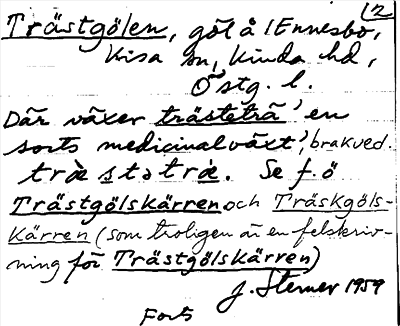 12
Trästgölen, göl å Ennesbo,
Kisa sn, Kinda hd,
Östg. l.
Där växer trästeträ 'en
sorts medicinalväxt', brakved.
træ̀stətræ̀. Se f. ö
Trästgölskärren och Träskgöls-
kärren (som troligen är en felskriv-
ning för Trästgölskärren)
J. Sterner 1959
Forts